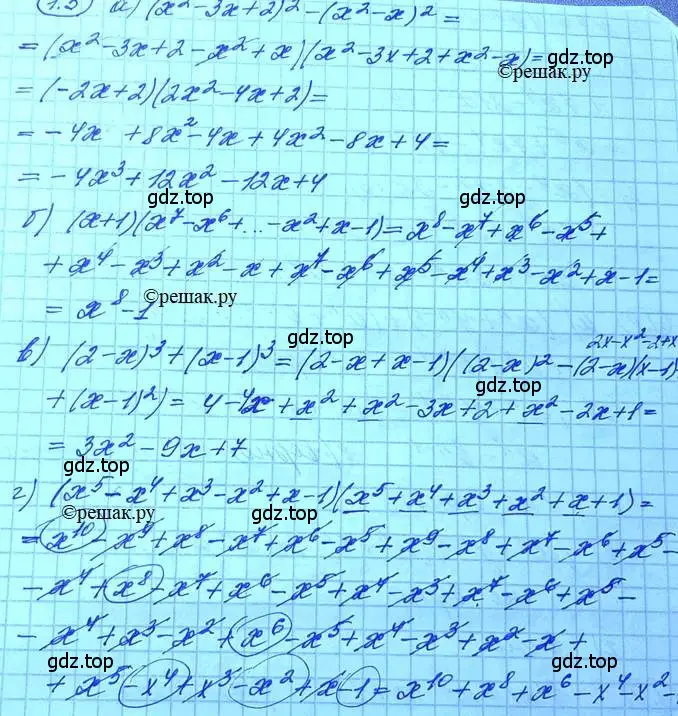 1.5 а) (x²-3x+2)² - (x²-x)² =
= (x²-3x+2-x²+x)(x²-3x+2+x²-x)=
gdz.top
©reшак.ру
= (-2x+2)(2x²-4x+2)=
gdz.top
= -4x +8x²-4x+4x²-8x+4=
= -4x³+12x²-12x+4
б) (x+1)(x⁷-x⁶+...-x²+x-1)=x⁸-x⁷+x⁶-x⁵+
+x⁴-x³+x²-x+x⁷-x⁶+x⁵-x⁴+x³-x²+x-1=
= x⁸-1
©reшак.ру
gdz.top
2x-x²-2+x
в) (2-x)³+(x-1)³=(2-x+x-1)((2-x)²-(2-x)(x-1)
+(x-1)²)= 4-4x+x²+x²-3x+2+x²-2x+1=
gdz.top
= 3x²-9x+7
gdz.top
г) (x⁵-x⁴+x³-x²+x-1)(x⁵+x⁴+x³+x²+x+1)=
©reшак.ру
gdz.top
=x¹⁰-x⁹+x⁸-x⁷+x⁶-x⁵+x⁹-x⁸+x⁷-x⁶+x⁵-
-x⁴+x⁸-x⁷+x⁶-x⁵+x⁴-x³+x⁷-x⁶+x⁵-
-x⁴+x³-x²+x⁶-x⁵+x⁴-x³+x²-x+
gdz.top
gdz.top
+x⁵-x⁴+x³-x²+x-1=x¹⁰+x⁸+x⁶-x⁴-x²-
gdz.top